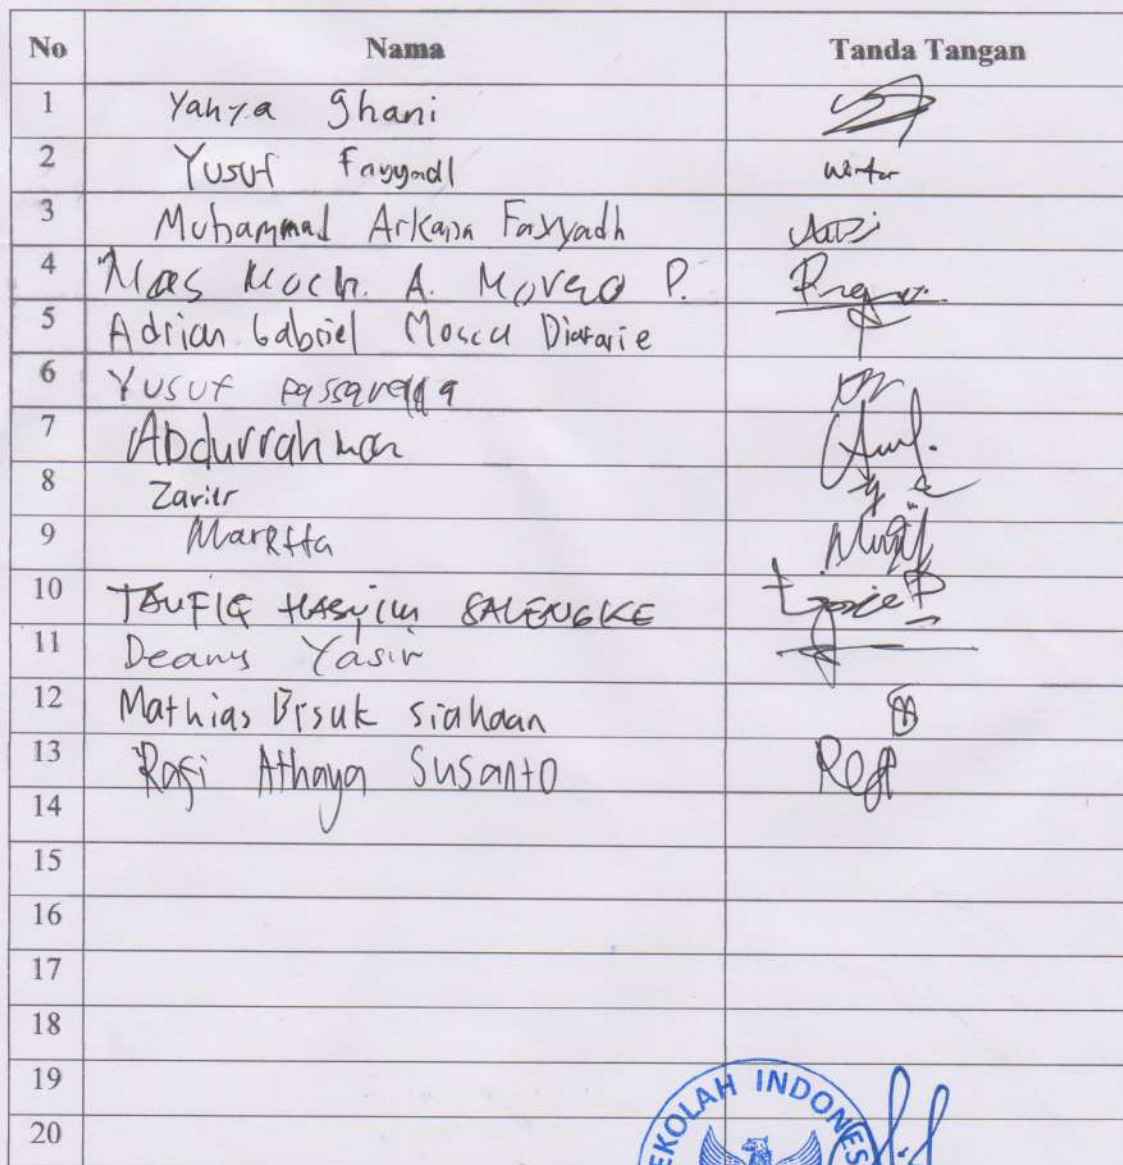 No Nama Tanda Tangan
1 Yahya Ghani
2 Yusuf Fayyadl winter
3 Muhammad Arkana Fayyadh
4 Mas Moch. A. Moreno P.
5 Adrian Gabriel Mosca Diatarie
6 Yusuf Passarella
7 Abdurrahman
8
9 Maretta
10 TAUFIQ HASYIM SALENGKE
11 Deanys Yasir
12 Mathias Bisuk siahaan
13 Rafi Athaya Susanto
14
15
16
17
18
19
20
EKOLAH INDONES